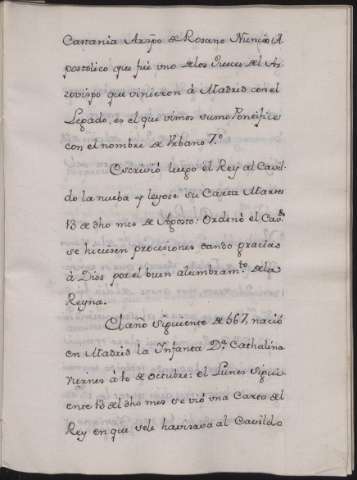 Castania Arzpo de Rosano Nuncio A
postolico que fue vno delos Jueces del Ar
zovispo que vinieron á Madrid con el
Legado, es el que vimos sumo Pontifice
con el nombre de Vrbano 7.º
Escrivió luego el Rey al Cavil
do la nueba y leyose su Carta Martes
13 de dho mes de Agosto. Ordenó el Cavdo
se hiciesen procesiones dando gracias
á Dios por el buen alumbramto dela
Reyna.
El año siguiente de 567, nació
en Madrid la Infanta Da Cathalina
viernes á 10 de octubre: el Lunes sigui
ente 13 del dho mes se vió vna Carta del
Rey en que se le havisava al Cavildo